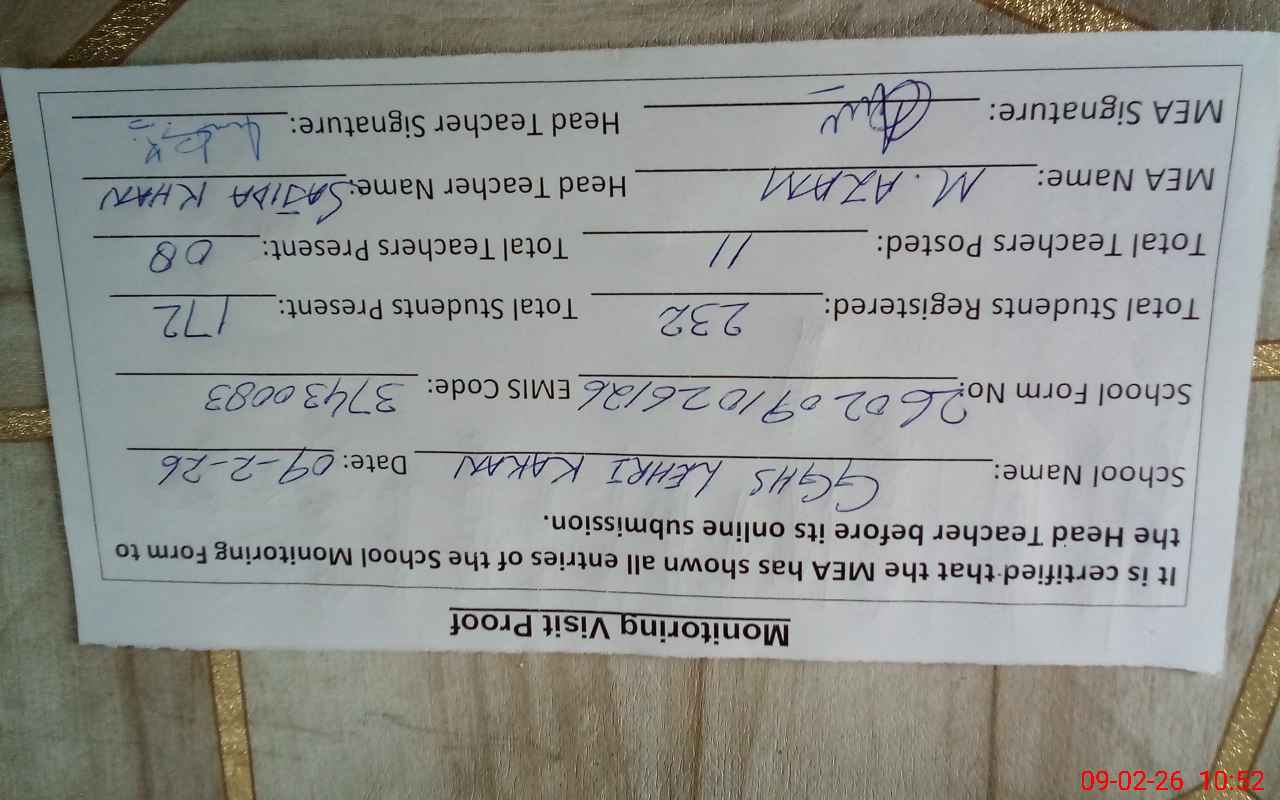 Monitoring Visit Proof
It is certified that the MEA has shown all entries of the School Monitoring Form to
the Head Teacher before its online submission.
School Name: GGHS LEHRI KAKAN Date: 09-2-26
School Form No: 2602091026126 EMIS Code: 37430083
Total Students Registered: 232 Total Students Present: 172
Total Teachers Posted: 11 Total Teachers Present: 08
MEA Name: M. AZAM Head Teacher Name: SAJIDA KHAN
MEA Signature: Head Teacher Signature:
09-02-26 10:52